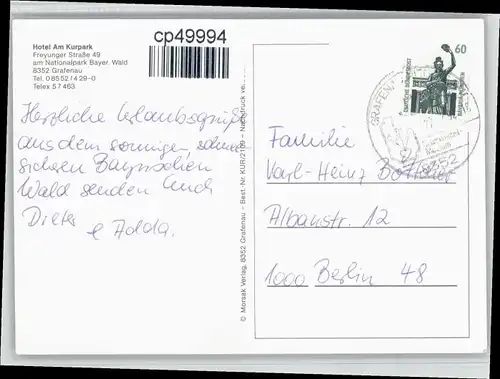 cp49994
Hotel Am Kurpark
Freyunger Straße 49
am Nationalpark Bayer. Wald
8352 Grafenau
Tel. 08552/429-0
Telex 57463
Herzliche Urlaubsgrüße
aus dem sonnigen
Bayrischen
Wald senden Euch
Dieter
e Adda.
© Morsak Verlag, 8352 Grafenau - Best.-Nr. KUR/2109 - Nachdruck ve
60
DEUTSCHE BUNDESPOST
BAVARIA MÜNCHEN
GRAFENAU
8352
Familie
Karl-Heinz
Albanstr. 12
1000 Berlin 48